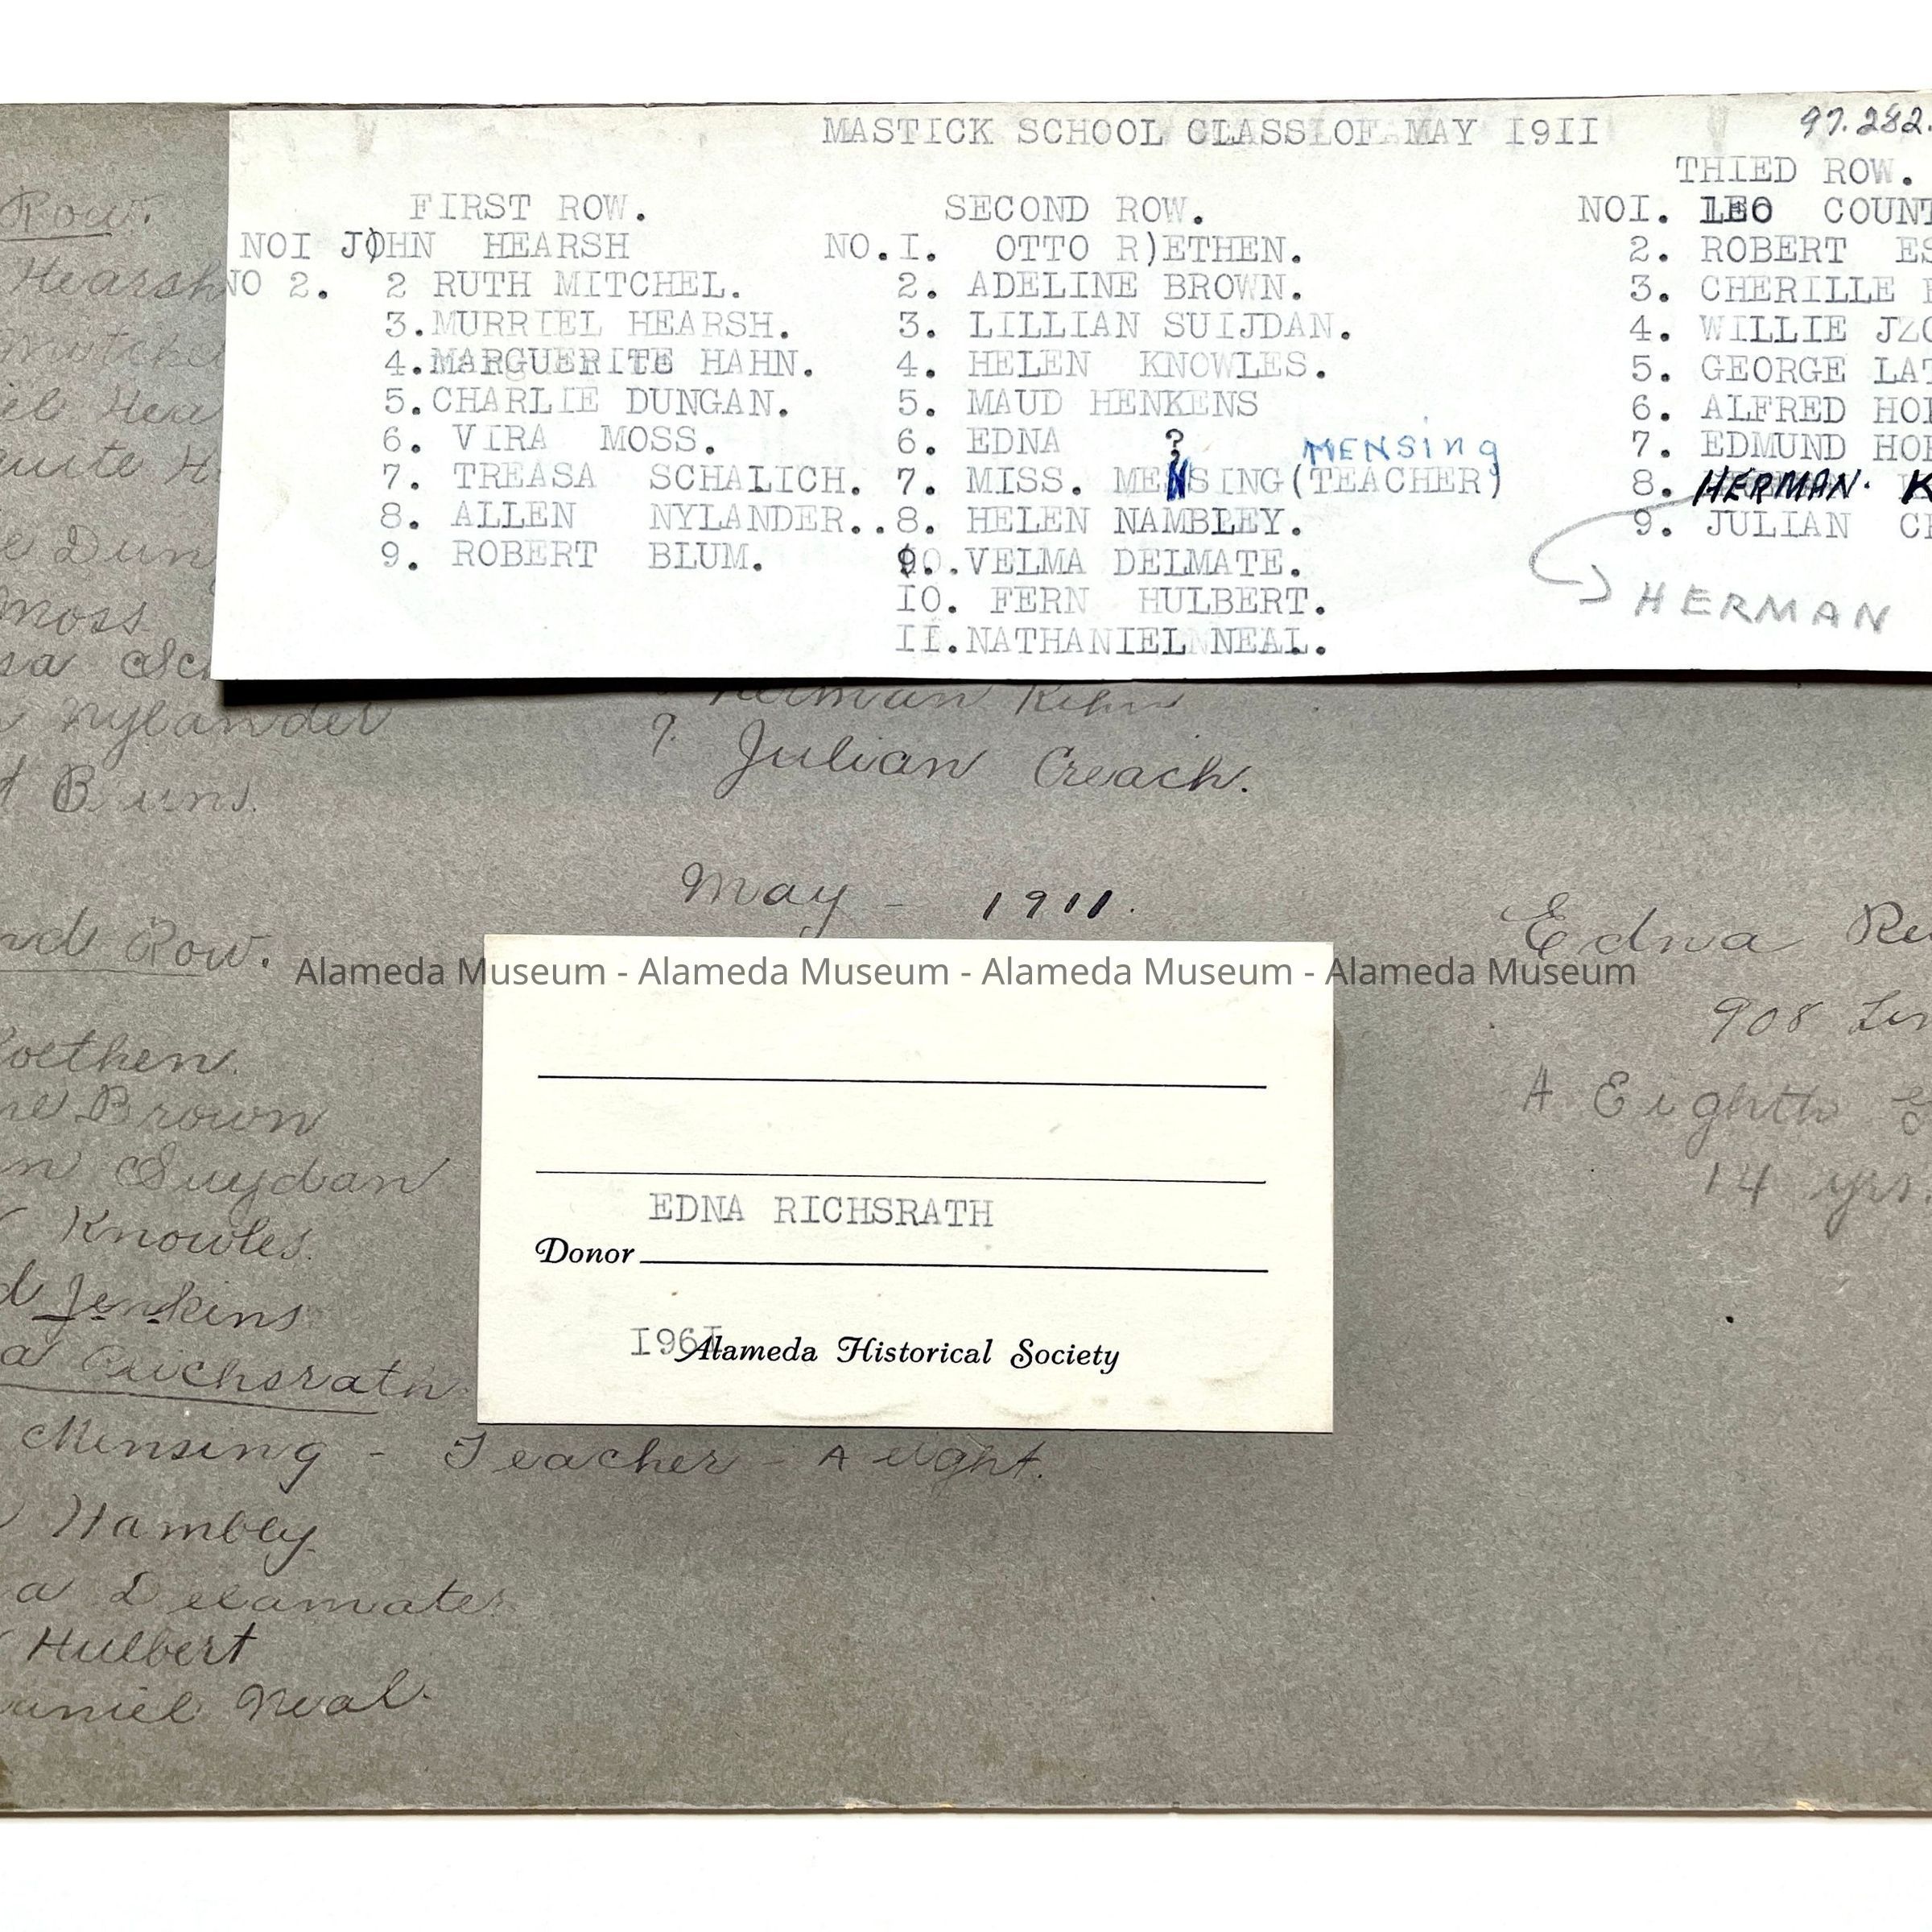 MASTICK SCHOOL CLASS OF MAY I9II
97.282.
FIRST ROW.
NOI JOHN HEARSH
NO 2. 2 RUTH MITCHEL.
3. MURRIEL HEARSH.
4. MARGUERITE HAHN.
5. CHARLIE DUNGAN.
6. VIRA MOSS.
7. TREASA SCHALICH.
8. ALLEN NYLANDER..
9. ROBERT BLUM.
SECOND ROW.
NO.I. OTTO R)ETHEN.
2. ADELINE BROWN.
3. LILLIAN SUIJDAN.
4. HELEN KNOWLES.
5. MAUD HENKENS
6. EDNA ?
MENSING
7. MISS. MENSING(TEACHER)
8. HELEN NAMBLEY.
9. VELMA DELMATE.
IO. FERN HULBERT.
II. NATHANIEL NEAL.
THIED ROW.
NOI. LEO COUNT
2. ROBERT ES
3. CHERILLE
4. WILLIE JZO
5. GEORGE LAT
6. ALFRED HOR
7. EDMUND HOR
8. HERMAN. K
9. JULIAN CR
HERMAN
Row.
Hearsh
Mitche
iel Hea
quite H
e Dung
Moss
sa Sch
n Nylander
t Buns.
Herman Kehn
9. Julian Creach.
May - 1911.
nd Row.
Roethen.
ne Brown
an Suydan
Knowles.
d Jenkins
a Reichsrath
Mensing - Teacher - A eight.
Hambley
a Delamater
Hulbert
aniel Neal.
Edna Re
908 Lin
A Eighth g
14 yrs
Alameda Museum - Alameda Museum - Alameda Museum - Alameda Museum
EDNA RICHSRATH
Donor
I96I
Alameda Historical Society